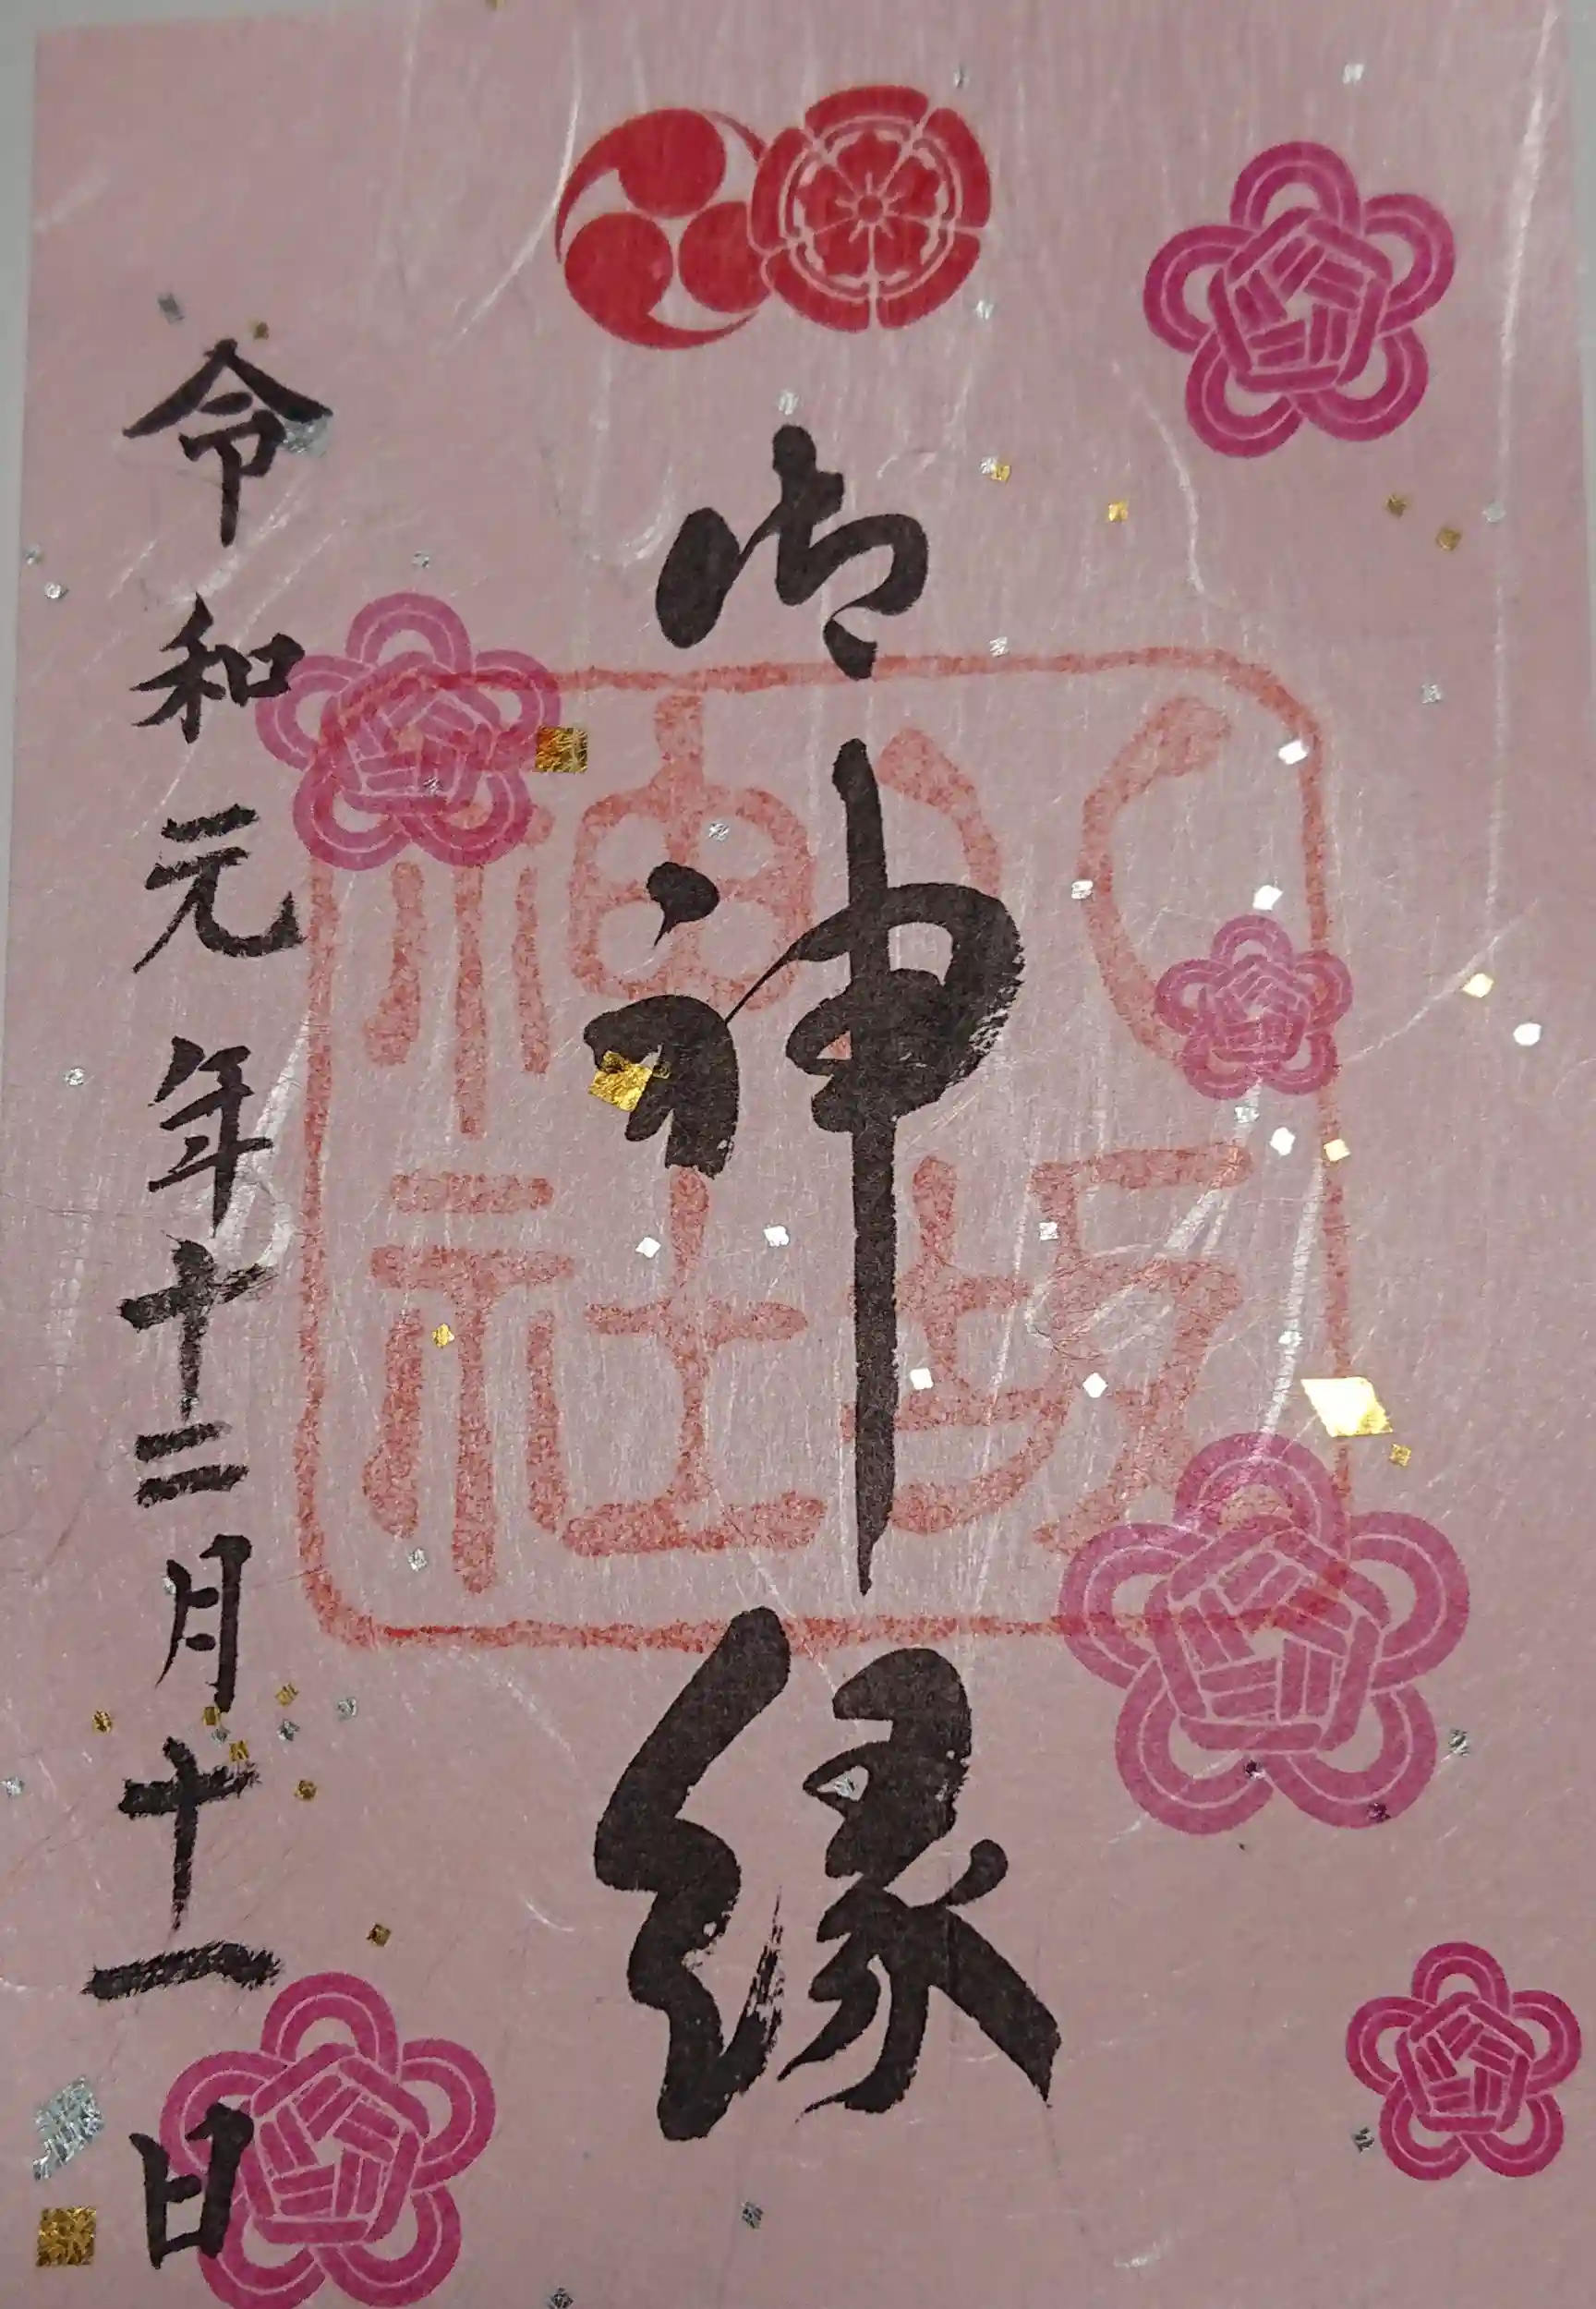 御神縁
八坂神社
令和元年十二月十一日